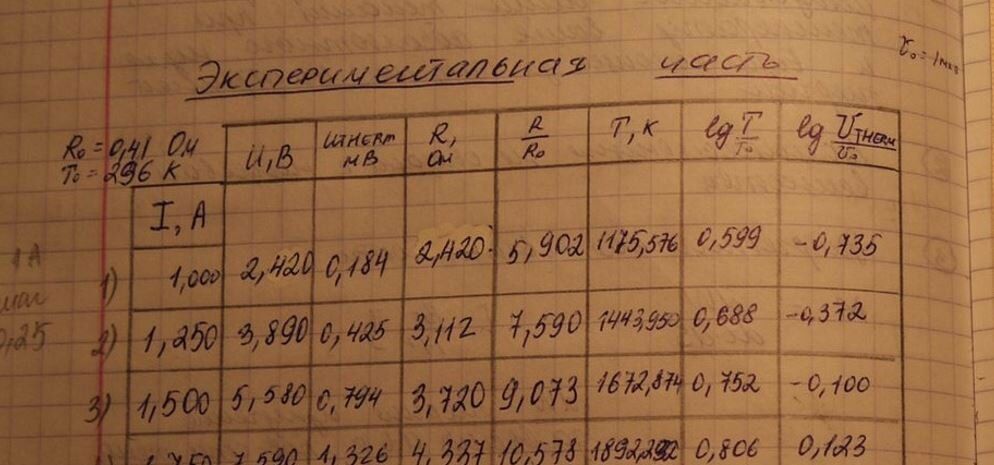 Экспериментальная часть
R₀ = 0,41 Ом
T₀ = 296 K
I, A | U, B | UTHERM мВ | R, Ом | R/R₀ | T, K | lg T/T₀ | lg UTHERM/U₀
1) 1,000 | 2,420 | 0,184 | 2,420 | 5,902 | 1175,576 | 0,599 | -0,735
2) 1,250 | 3,890 | 0,425 | 3,112 | 7,590 | 1443,950 | 0,688 | -0,372
3) 1,500 | 5,580 | 0,794 | 3,720 | 9,073 | 1672,874 | 0,752 | -0,100
1,750 | 7,590 | 1,326 | 4,337 | 10,578 | 1892,292 | 0,806 | 0,123